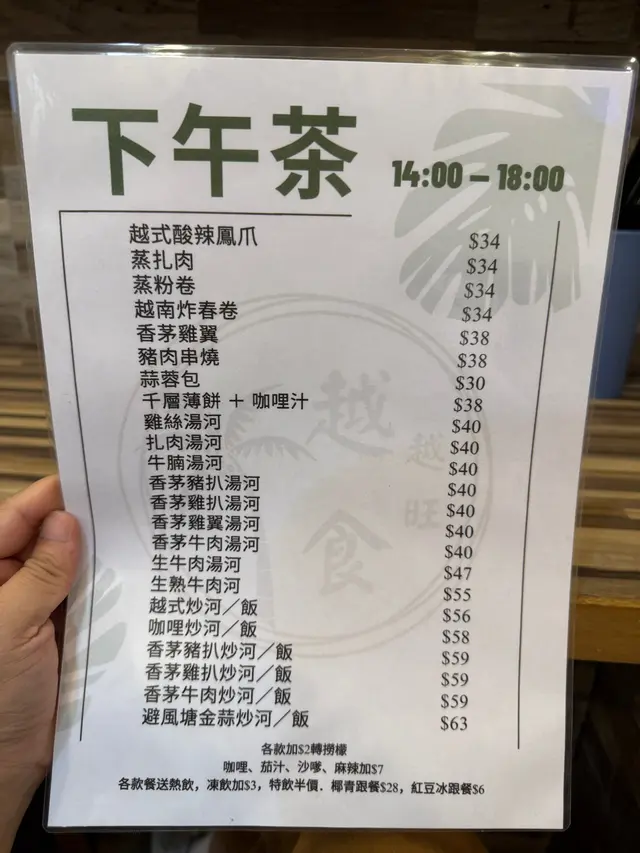 下午茶 14:00 — 18:00
越式酸辣鳳爪 $34
蒸扎肉 $34
蒸粉卷 $34
越南炸春卷 $34
香茅雞翼 $38
豬肉串燒 $38
蒜蓉包 $30
千層薄餅 ＋ 咖哩汁 $38
雞絲湯河 $40
扎肉湯河 $40
牛腩湯河 $40
香茅豬扒湯河 $40
香茅雞扒湯河 $40
香茅雞翼湯河 $40
香茅牛肉湯河 $40
生牛肉湯河 $47
生熟牛肉河 $55
越式炒河／飯 $56
咖哩炒河／飯 $58
香茅豬扒炒河／飯 $59
香茅雞扒炒河／飯 $59
香茅牛肉炒河／飯 $59
避風塘金蒜炒河／飯 $63
越
食
越
旺
各款加$2轉撈檬
咖哩、茄汁、沙嗲、麻辣加$7
各款餐送熱飲，凍飲加$3，特飲半價．椰青跟餐$28，紅豆冰跟餐$6